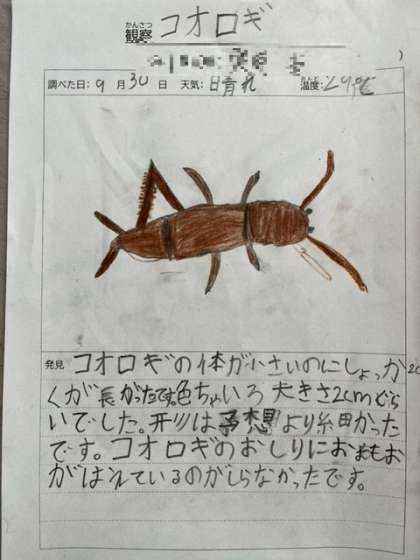 かんさつ
観察 コオロギ
調べた日: 9 月 30 日 天気: 晴れ 温度: 29℃
発見 コオロギの体が小さいのにしょっか
くが長かったです。色ちゃいろ 大きさ2cmぐら
いでした。形は予想より細かった
です。コオロギのおしりにおまもお
がはえているのがしらなかったです。